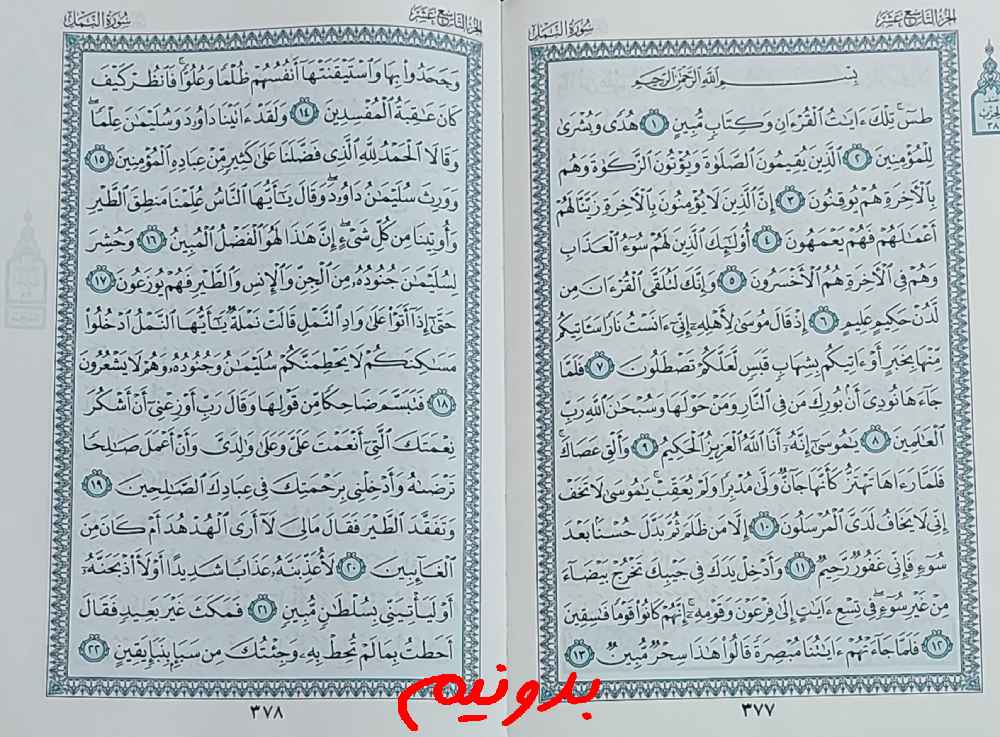 الجزء التاسع عشر
سورة النمل
بِسْمِ اللَّهِ الرَّحْمَٰنِ الرَّحِيمِ
طسٓ ۚ تِلْكَ ءَايَٰتُ ٱلْقُرْءَانِ وَكِتَابٍ مُّبِينٍ ١ هُدًى وَبُشْرَىٰ
لِلْمُؤْمِنِينَ ٢ ٱلَّذِينَ يُقِيمُونَ ٱلصَّلَوٰةَ وَيُؤْتُونَ ٱلزَّكَوٰةَ وَهُم
بِٱلْءَاخِرَةِ هُمْ يُوقِنُونَ ٣ إِنَّ ٱلَّذِينَ لَا يُؤْمِنُونَ بِٱلْءَاخِرَةِ زَيَّنَّا لَهُمْ
أَعْمَٰلَهُمْ فَهُمْ يَعْمَهُونَ ٤ أُو۟لَٰٓئِكَ ٱلَّذِينَ لَهُمْ سُوٓءُ ٱلْعَذَابِ
وَهُمْ فِى ٱلْءَاخِرَةِ هُمُ ٱلْأَخْسَرُونَ ٥ وَإِنَّكَ لَتُلَقَّى ٱلْقُرْءَانَ مِن
لَّدُنْ حَكِيمٍ عَلِيمٍ ٦ إِذْ قَالَ مُوسَىٰ لِأَهْلِهِۦٓ إِنِّىٓ ءَانَسْتُ نَارًا سَـَٔاتِيكُم
مِّنْهَا بِخَبَرٍ أَوْ ءَاتِيكُم بِشِهَابٍ قَبَسٍ لَّعَلَّكُمْ تَصْطَلُونَ ٧ فَلَمَّا
جَآءَهَا نُودِىَ أَنۢ بُورِكَ مَن فِى ٱلنَّارِ وَمَنْ حَوْلَهَا وَسُبْحَٰنَ ٱللَّهِ رَبِّ
ٱلْعَٰلَمِينَ ٨ يَٰمُوسَىٰٓ إِنَّهُۥٓ أَنَا ٱللَّهُ ٱلْعَزِيزُ ٱلْحَكِيمُ ٩ وَأَلْقِ عَصَاكَ ۚ
فَلَمَّا رَءَاهَا تَهْتَزُّ كَأَنَّهَا جَآنٌّ وَلَّىٰ مُدْبِرًا وَلَمْ يُعَقِّبْ ۚ يَٰمُوسَىٰ لَا تَخَفْ
إِنِّى لَا يَخَافُ لَدَىَّ ٱلْمُرْسَلُونَ ١٠ إِلَّا مَن ظَلَمَ ثُمَّ بَدَّلَ حُسْنًۢا بَعْدَ
سُوٓءٍ فَإِنِّى غَفُورٌ رَّحِيمٌ ١١ وَأَدْخِلْ يَدَكَ فِى جَيْبِكَ تَخْرُجْ بَيْضَآءَ
مِنْ غَيْرِ سُوٓءٍ ۖ فِى تِسْعِ ءَايَٰتٍ إِلَىٰ فِرْعَوْنَ وَقَوْمِهِۦٓ ۚ إِنَّهُمْ كَانُوا۟ قَوْمًا فَٰسِقِينَ
١٢ فَلَمَّا جَآءَتْهُمْ ءَايَٰتُنَا مُبْصِرَةً قَالُوا۟ هَٰذَا سِحْرٌ مُّبِينٌ ١٣
٣٧٧
الجزء التاسع عشر
سورة النمل
وَجَحَدُوا۟ بِهَا وَٱسْتَيْقَنَتْهَآ أَنفُسُهُمْ ظُلْمًا وَعُلُوًّا ۚ فَٱنظُرْ كَيْفَ
كَانَ عَٰقِبَةُ ٱلْمُفْسِدِينَ ١٤ وَلَقَدْ ءَاتَيْنَا دَاوُۥدَ وَسُلَيْمَٰنَ عِلْمًا ۖ
وَقَالَا ٱلْحَمْدُ لِلَّهِ ٱلَّذِى فَضَّلَنَا عَلَىٰ كَثِيرٍ مِّنْ عِبَادِهِ ٱلْمُؤْمِنِينَ ١٥
وَوَرِثَ سُلَيْمَٰنُ دَاوُۥدَ ۖ وَقَالَ يَٰٓأَيُّهَا ٱلنَّاسُ عُلِّمْنَا مَنطِقَ ٱلطَّيْرِ
وَأُوتِينَا مِن كُلِّ شَىْءٍ ۖ إِنَّ هَٰذَا لَهُوَ ٱلْفَضْلُ ٱلْمُبِينُ ١٦ وَحُشِرَ
لِسُلَيْمَٰنَ جُنُودُهُۥ مِنَ ٱلْجِنِّ وَٱلْإِنسِ وَٱلطَّيْرِ فَهُمْ يُوزَعُونَ ١٧
حَتَّىٰٓ إِذَآ أَتَوْا۟ عَلَىٰ وَادِ ٱلنَّمْلِ قَالَتْ نَمْلَةٌ يَٰٓأَيُّهَا ٱلنَّمْلُ ٱدْخُلُوا۟
مَسَٰكِنَكُمْ لَا يَحْطِمَنَّكُمْ سُلَيْمَٰنُ وَجُنُودُهُۥ وَهُمْ لَا يَشْعُرُونَ
١٨ فَتَبَسَّمَ ضَاحِكًا مِّن قَوْلِهَا وَقَالَ رَبِّ أَوْزِعْنِىٓ أَنْ أَشْكُرَ
نِعْمَتَكَ ٱلَّتِىٓ أَنْعَمْتَ عَلَىَّ وَعَلَىٰ وَٰلِدَىَّ وَأَنْ أَعْمَلَ صَٰلِحًا
تَرْضَىٰهُ وَأَدْخِلْنِى بِرَحْمَتِكَ فِى عِبَادِكَ ٱلصَّٰلِحِينَ ١٩
وَتَفَقَّدَ ٱلطَّيْرَ فَقَالَ مَالِىَ لَآ أَرَى ٱلْهُدْهُدَ أَمْ كَانَ مِنَ
ٱلْغَآئِبِينَ ٢٠ لَأُعَذِّبَنَّهُۥ عَذَابًا شَدِيدًا أَوْ لَأَا۟ذْبَحَنَّهُۥٓ
أَوْ لَيَأْتِيَنِّى بِسُلْطَٰنٍ مُّبِينٍ ٢١ فَمَكَثَ غَيْرَ بَعِيدٍ فَقَالَ
أَحَطتُ بِمَا لَمْ تُحِطْ بِهِۦ وَجِئْتُكَ مِن سَبَإٍۭ بِنَبَإٍ يَقِينٍ ٢٢
٣٧٨
بدونیم